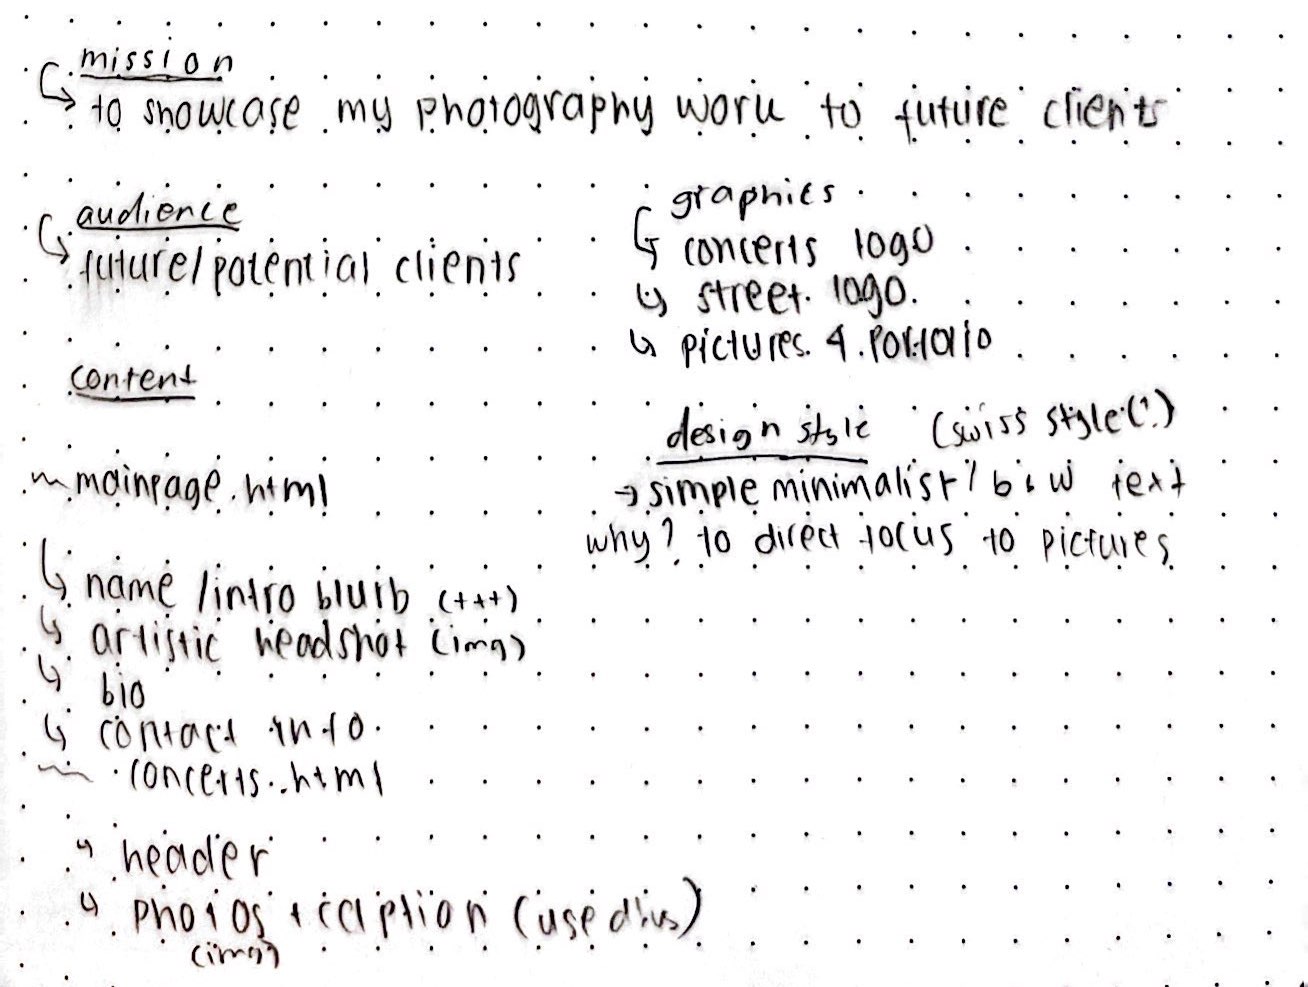 mission
to showcase my photography work to future clients
audience
future/potential clients
graphics
concerts logo
street logo.
pictures 4 portfolio
content
design style (swiss style(?)
simple minimalist / b & w text
why? to direct focus to pictures
mainpage.html
name / intro blurb (+++)
artistic headshot (img)
bio
contact info
concerts.html
header
photos + caption (use divs)
(img)